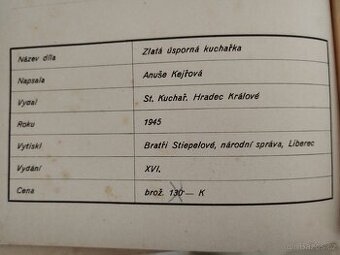 Název díla Zlatá úsporná kuchařka
Napsala Anuše Kejřová
Vydal St. Kuchař. Hradec Králové
Roku 1945
Vytiskl Bratři Stiepelové, národní správa, Liberec
Vydání XVI.
Cena brož. 130— K